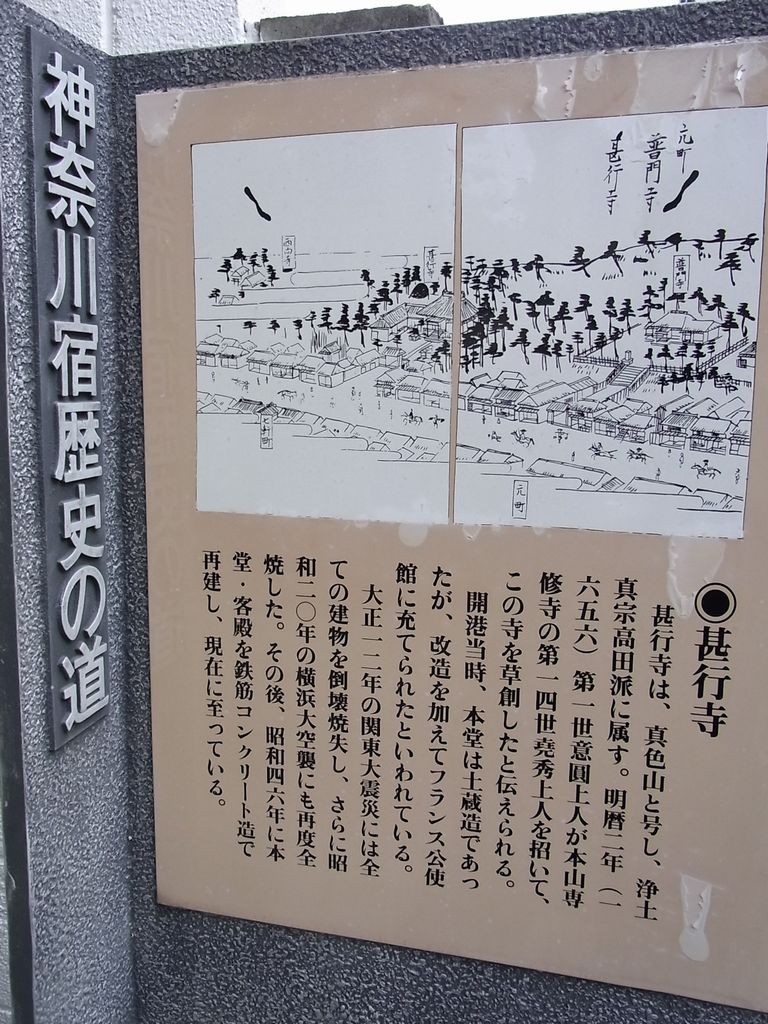 神奈川宿歴史の道
元町
普門寺
甚行寺
普門寺
甚行寺
元町
●甚行寺
甚行寺は、真色山と号し、浄土
真宗高田派に属す。明暦二年（一
六五六）第一世意圓上人が本山専
修寺の第一四世堯秀上人を招いて、
この寺を草創したと伝えられる。
開港当時、本堂は土蔵造であっ
たが、改造を加えてフランス公使
館に充てられたといわれている。
大正一二年の関東大震災には全
ての建物を倒壊焼失し、さらに昭
和二〇年の横浜大空襲にも再度全
焼した。その後、昭和四六年に本
堂・客殿を鉄筋コンクリート造で
再建し、現在に至っている。